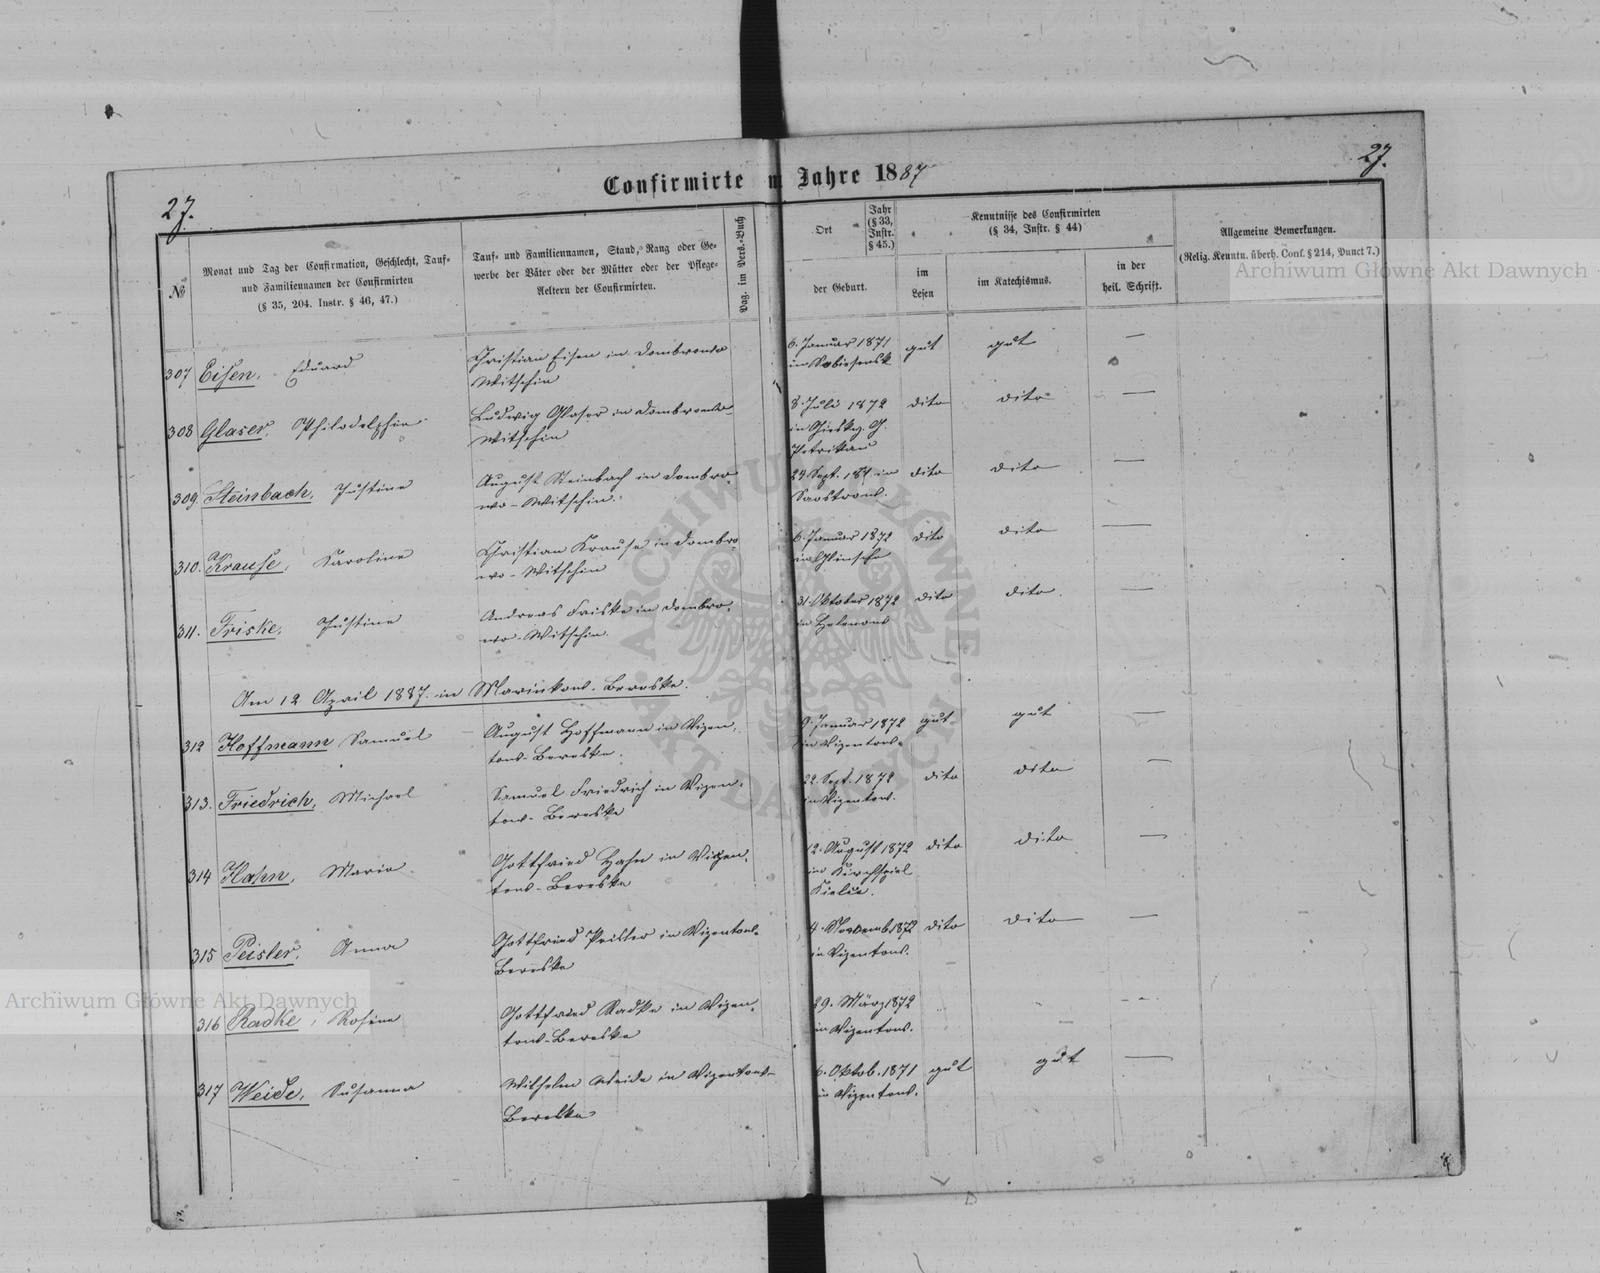 27.
Confirmirte im Jahre 1887
27.
№
Monat und Tag der Confirmation, Geschlecht, Tauf=
und Familiennamen der Confirmirten
(§ 35, 204. Instr. § 46, 47.)
Tauf= und Familiennamen, Stand, Rang oder Ge=
werbe der Väter oder der Mütter oder der Pflege=
Aeltern der Confirmirten.
Pag. im Pers.=Buch
Ort
Jahr
(§ 33,
Instr.
§ 45.)
der Geburt.
Kenntnisse des Confirmirten
(§ 34, Instr. § 44)
im
Lesen
im Katechismus.
in der
heil. Schrift.
Allgemeine Bemerkungen.
(Relig. Kenntn. überh. Conf. § 214, Punct 7.)
Archiwum Główne Akt Dawnych
307 Eisen, Eduard
Christian Eisen in Dombrowo
Witschin
6. Januar 1871
gut gut —
308 Glaser, Philadelphia
Ludwig Glaser in Dombrowo-
Witschin
8. Juli 1872
Petrikau
dito dito —
309. Steinbach, Justine
August Steinbach in Dombro-
wo-Witschin.
24 Sept. in
dito dito —
310. Krause, Karoline
Christian Krause in Dombro-
wo-Witschin
6. Januar 1872
dito dito —
311. Friske, Justine
Andreas Friske in Dombro-
wo-Witschin.
31. Oktober 1872
in Helenow
dito dito —
Am 12 April 1887. in Marinkow-Bereske.
312 Hoffmann Samuel
August Hoffmann in Wizen-
tow-Bereske.
9. Januar 1872
in Wizentow.
gut gut —
313. Friedrich, Michael
Samuel Friedrich in Wizen-
tow-Bereske
22. Sept. 1872
in Wizentow.
dito dito —
314 Hahn, Maria
Gottfried Hahn in Wizen-
tow-Bereske
12. August 1872
in Kirchspiel
Kielce.
dito dito —
315 Peisler, Anna
Gottfried Peisler in Wizentow-
Bereske
4. Novemb. 1872
in Wizentow.
dito dito —
Archiwum Główne Akt Dawnych
316 Radke, Rosine
Gottfried Radke in Wizen-
tow-Bereske
29. März 1872
in Wizentow.
317 Weide, Susanna
Wilhelm Weide in Wizentow-
Bereske
6. Oktob. 1871
in Wizentow.
gut gut —
ARCHIWUM GŁÓWNE AKT DAWNYCH